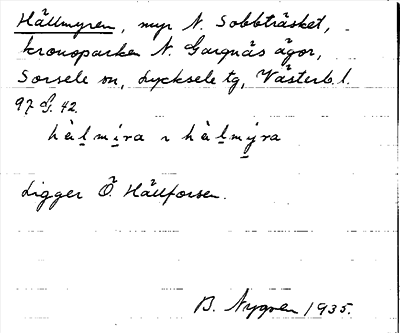 Hällmyren, myr N. Sobbträsket,
kronoparken N. Gargnäs ägor,
Sorsele sn, Lycksele tg, Västerb. l.
97 G. 42.
hèl̥mi̬ra ɿ hèl̥my̬ra
Ligger Ö. Hällforsen.
B. Nygren 1935.